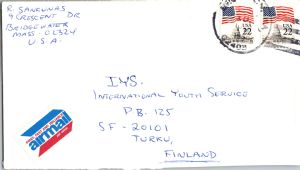 R. SANKUNAS
9 CRESCENT DR
BRIDGEWATER
MASS. 02324
U.S.A.
USA
22
USA
22
IYS.
INTERNATIONAL YOUTH SERVICE
PB. 125
SF-20101
TURKU,
FINLAND
airmail